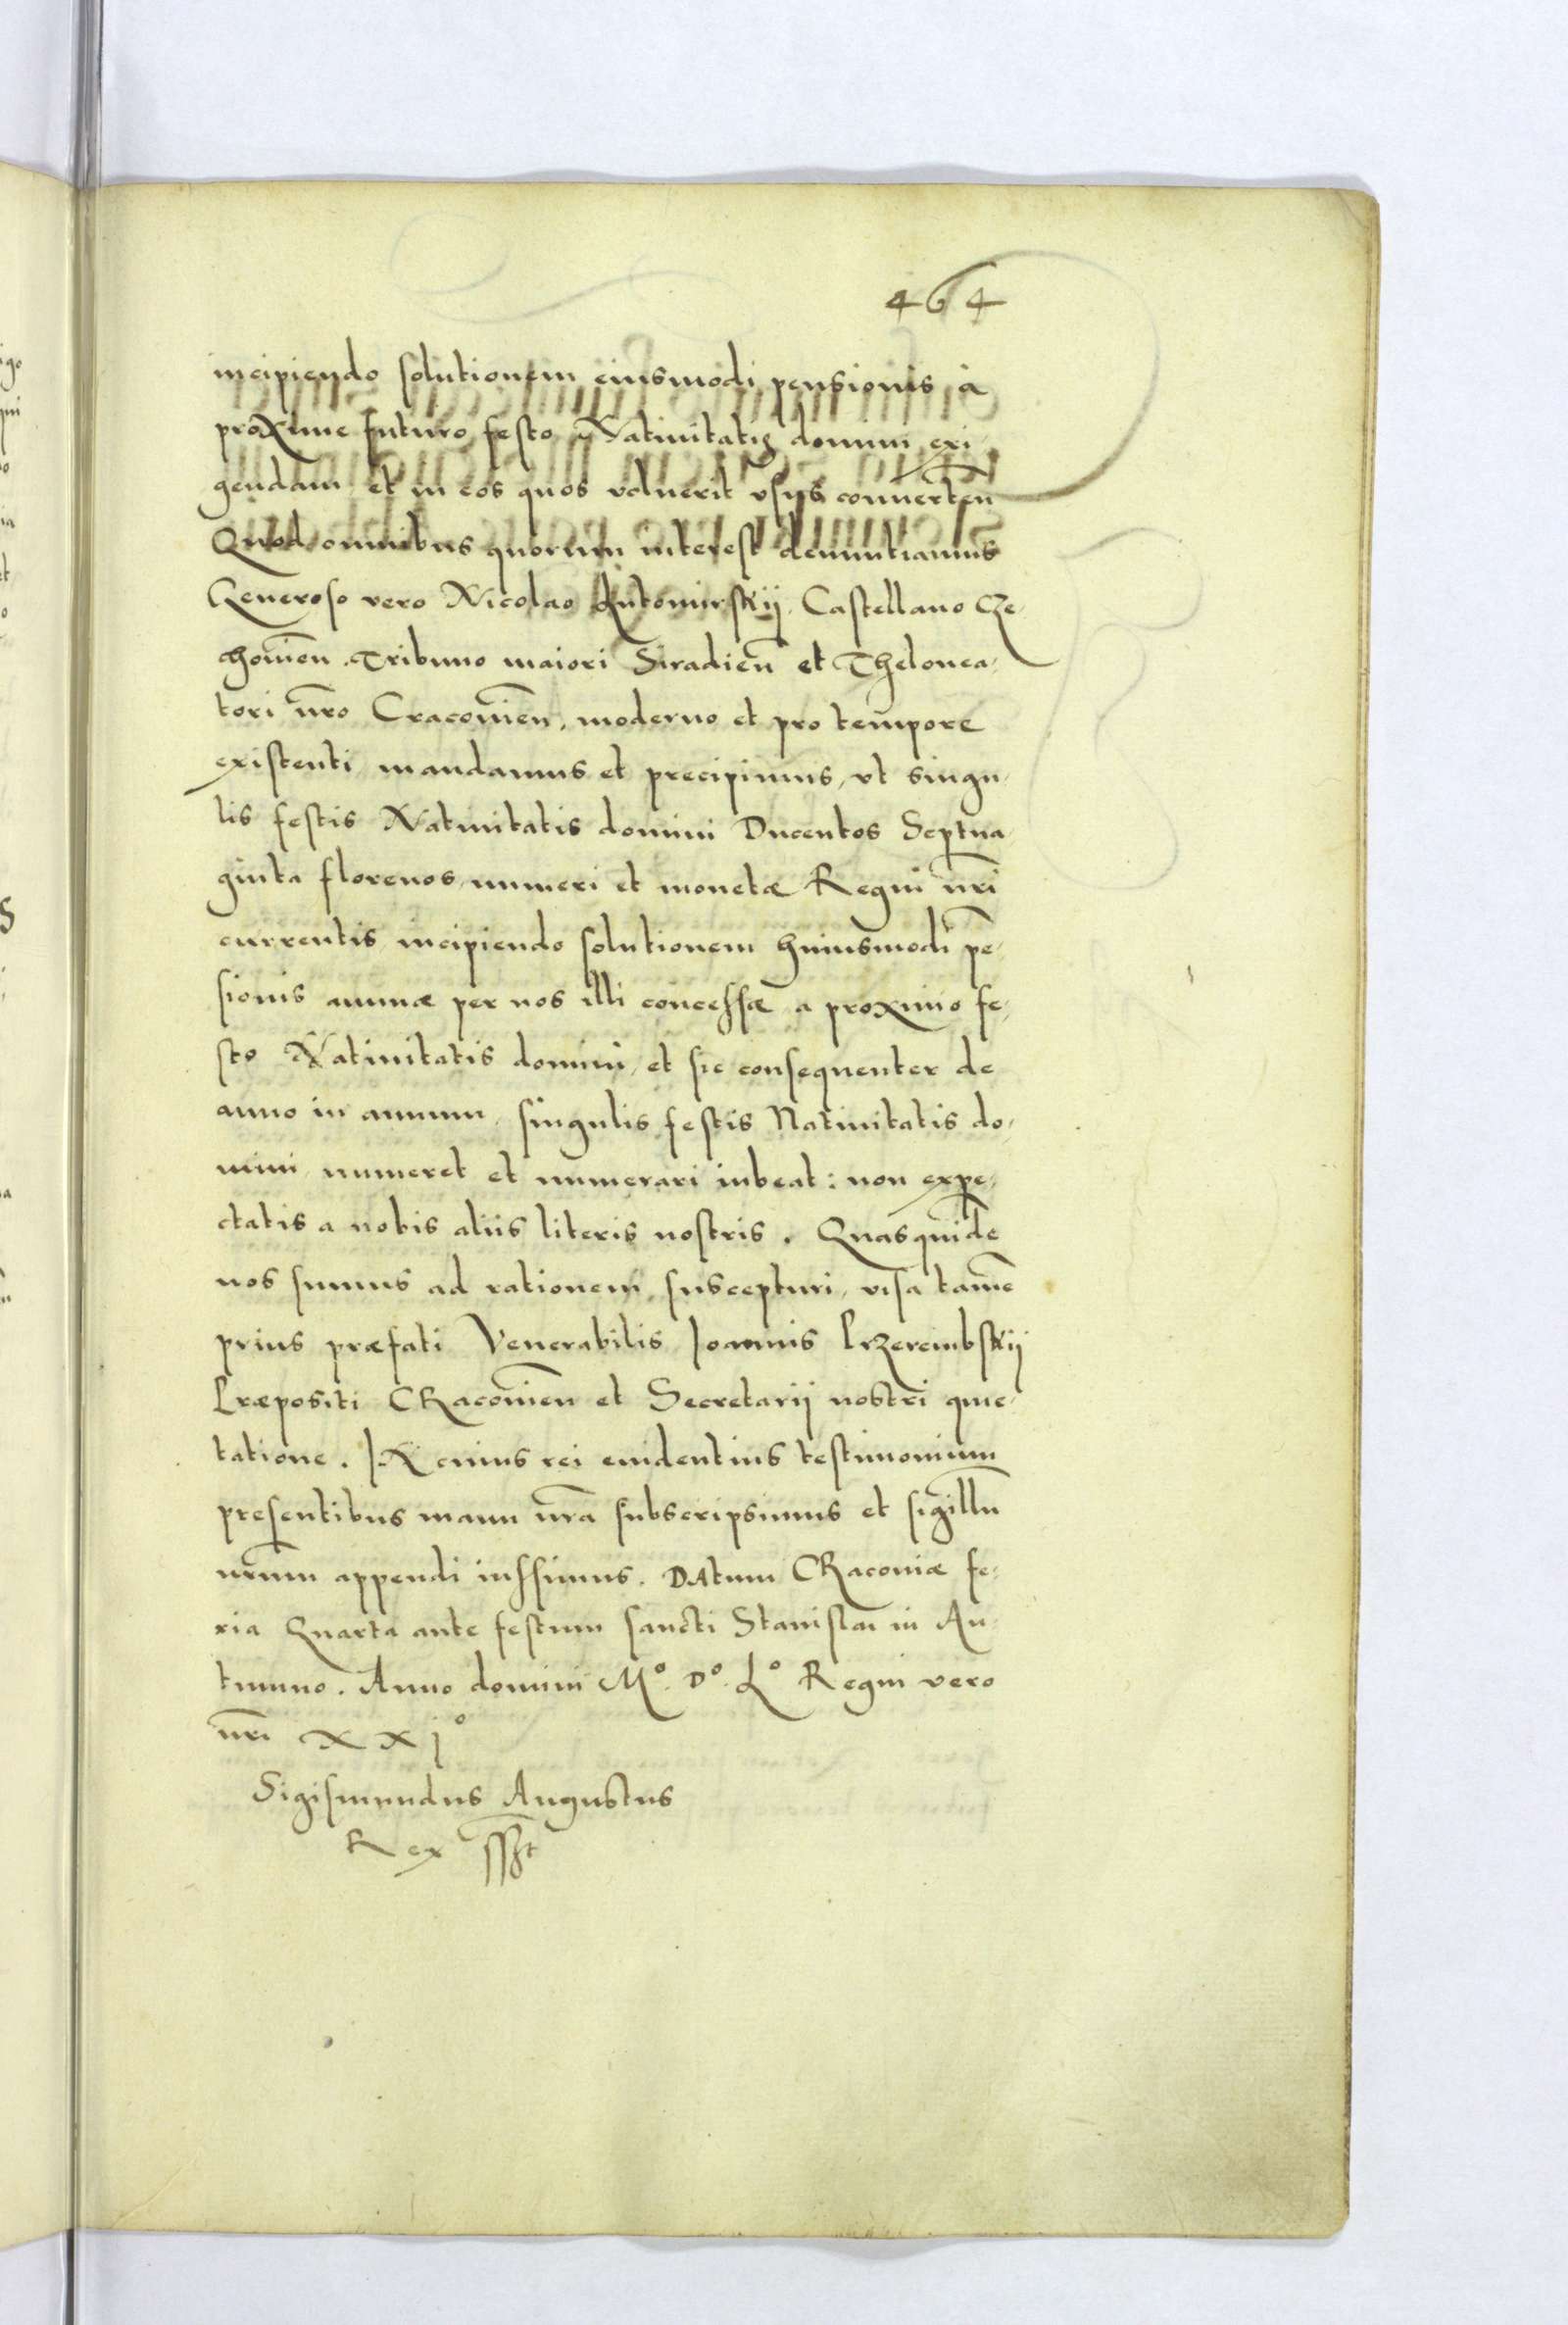 464
incipiendo solutionem eiusmodi pensionis à
proxime futuro festo Natiuitatis domini exi-
gendam et in eos quos voluerit vsus conuerten̄
Quod omnibus quorum interest denuntiamus
Generoso vero Nicolao Lutomirskij Castellano Cze-
chouień Tribuno maiori Siradień et Thelonea-
tori nr̄o Cracouień, moderno et pro tempore
existenti mandamus et precipimus, vt singu-
lis festis Natiuitatis domini Ducentos Septua-
ginta florenos numeri et monetæ Regni nr̄i
currentis incipiendo solutionem huiusmodi pē-
sionis annuæ per nos illi concessæ a proximo fe-
sto Natiuitatis domini, et sic consequenter de
anno in annum, singulis festis Natiuitatis do-
mini numeret et numerari iubeat: non expe-
ctatis a nobis aliis literis nostris. Quasquidē
nos sumus ad rationem suscepturi, visa tamē
prius præfati Venerabilis Ioannis Przerembskij
Præpositi CRacouień et Secretarij nostri quie-
tatione. IN cuius rei euidentius testimonium
presentibus manu nr̄a subscripsimus et sigillū
nr̄um appendi iussimus. DAtum CRacouiæ fe-
ria Quarta ante festum sancti Stanislai in Au-
tumno. Anno domini Mº. Dº. Lº Regni vero
nr̄i XXjº
Sigismundus Augustus
Rex sszt